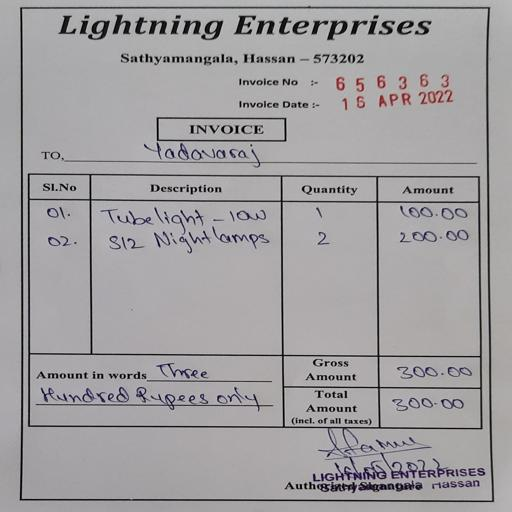 Lightning Enterprises
Sathyamangala, Hassan – 573202
Invoice No :- 6 5 6 3 6 3
Invoice Date :- 1 6 APR 2022
INVOICE
TO, Yadavaraj
Sl.No Description Quantity Amount
01. Tubelight - 10W 1 100.00
02. S12 Nightlamps 2 200.00
Amount in words Three
Hundred Rupees only
Gross
Amount 300.00
Total
Amount 300.00
(incl. of all taxes)
LIGHTNING ENTERPRISES
Sathyamangala Hassan